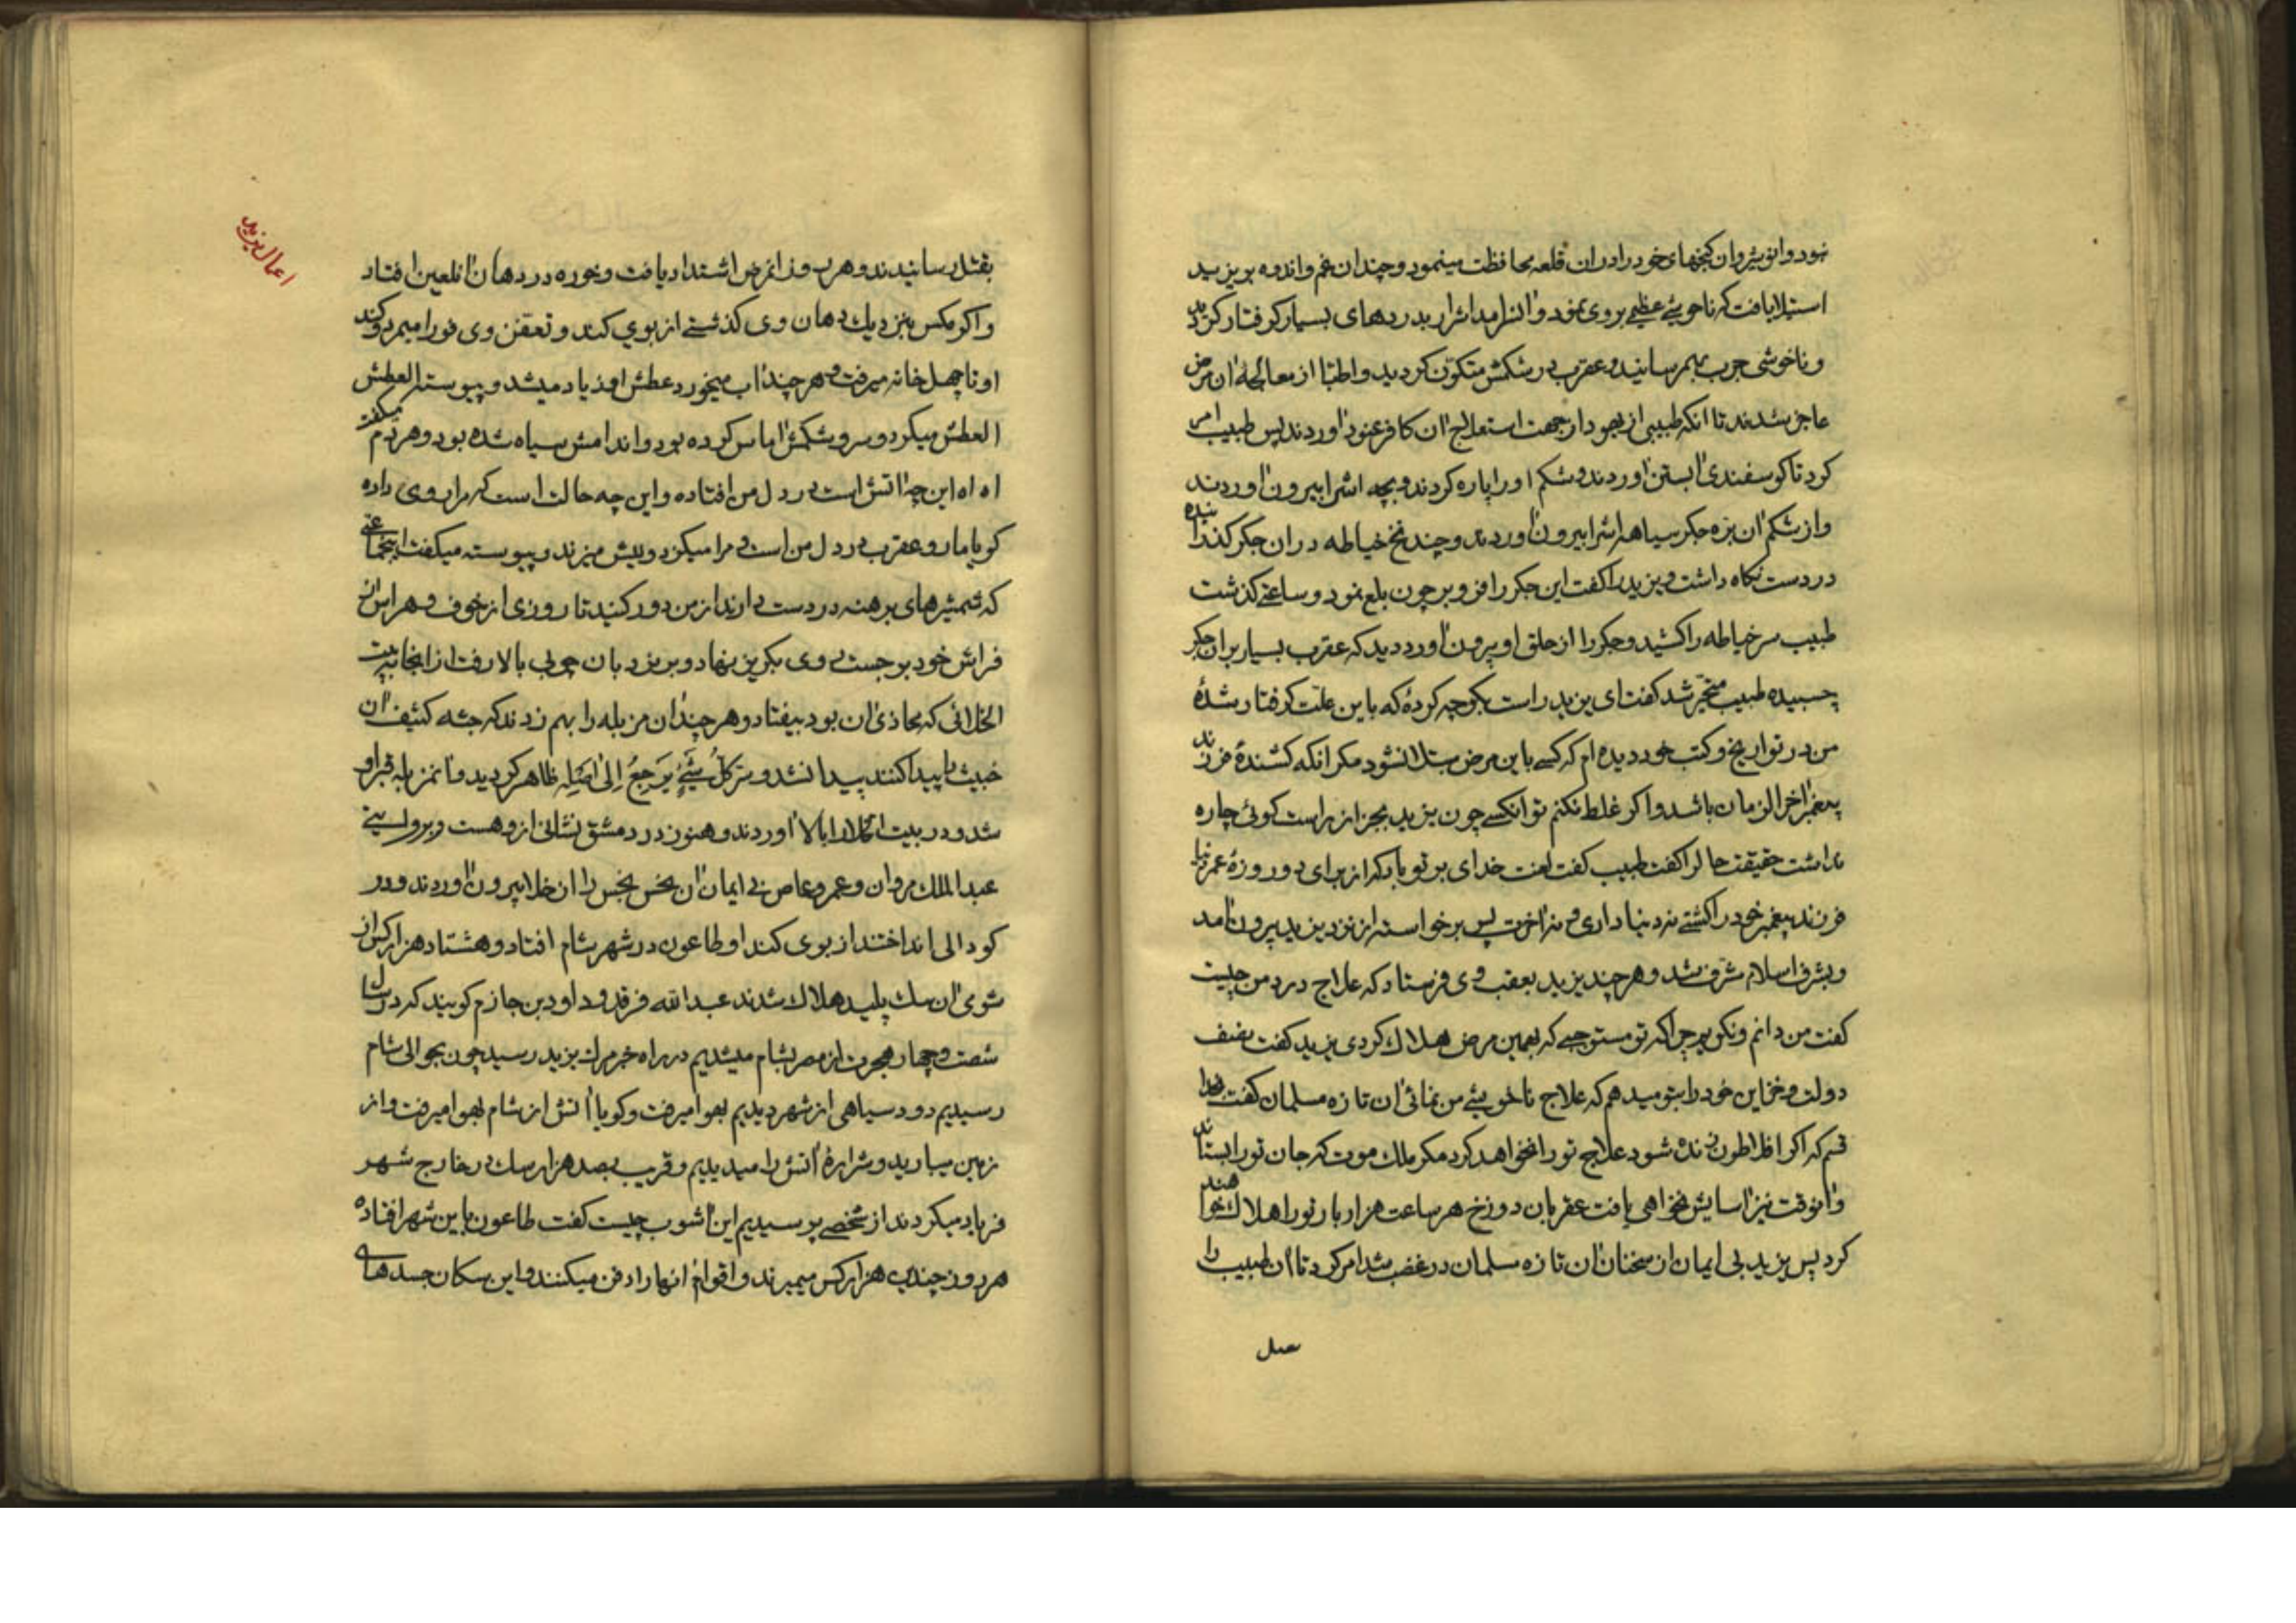 نمود و انوشیروان کنجهای خود را در ان قلعه محافظت مینمود و چندان غم و اندوه بر یزید
استیلا یافت که ناخوشیِ عظیمی بر وی نمود و اشرار بدردهای بسیار کرفتار کردید
و ناخوشی جرب بهم رسانید و عقرب در شکمش متکوّن کردید و اطبّا از معالجهٔ ان مرض
عاجز شدند تا انکه طبیبی از یهود از جهت استعلاج ان کافر عنود اوردند پس طبیب امر
کرد تا کوسفندی ابستن اوردند و شکم او را پاره کردند و بچه اشرا بیرون اوردند
و از شکم ان بره جکر سیاهشرا بیرون اوردند و چند نخ خیاطه در ان جکر کذرانیده
در دست نکاه داشت و یزید را کفت این جکر را فرو بر چون بلع نمود و ساعتی کذشت
طبیب سر خیاطه را کشید و جکر را از حلق او بیرون اورد دید که عقرب بسیار بران جکر
چسبیده طبیب متحیّر شد کفت ای یزید راست بکو چه کردهٔ که باین علّت کرفتار شدهٔ
من در تواریخ و کتب خود دیده ام که کسی باین مرض مبتلا نشود مکر انکه کشندهٔ فرزند
پیغمبر اخر الزمان باشد و اکر غلط نکنم تو انکسی چون یزید بجز از راست کوئی چاره
نداشت حقیقت حال را کفت طبیب کفت لعنت خدای بر تو باد که از برای دو روزهٔ عمر دنیا
فرزند پیغمبر خود را کشتی نه دنیا داری و نه اخرت پس برخواسته از نزد یزید بیرون امد
و بشرف اسلام مشرّف شد و هر چند یزید بعقب وی فرستاد که علاج درد من چیست
کفت من دانم و نکویم چرا که تو مستوجبی که بهمین مرض هلاک کردی یزید کفت نصف
دولت و خزاین خود را بتو میدهم که علاج ناخوشیِ من نمائی ان تازه مسلمان کفت بخدا
قسم که اکر افلاطون زنده شود علاج تو را نخواهد کرد مکر ملک موت که جان تو را بستاند
و انوقت نیز اسایش نخواهی یافت عقربان دوزخ هر ساعت هزار بار تو را هلاک خواهند
کرد پس یزید بی ایمان از سخنان ان تازه مسلمان در غضب شد امر کرد تا ان طبیب را
اعمال یزید
بقتل رسانیدند و هر روز انمرض اشتداد یافت و خوره در دهان ان لعین افتاد
و اکر مکس بنزدیک دهان وی کذشتی از بوی کند و تعفّن وی فورا میمرد و کند
او تا چهل خانه میرفت و هر چند اب میخورد عطش او زیاد میشد و پیوسته العطش
العطش میکرد و سر و شکمش اماس کرده بود و اندامش سیاه شده بود و هر دم میکفت
اه اه این چه اتش است در دل من افتاده و این چه حالت است که مرا روی داده
کویا مار و عقرب در دل من است و مرا میکزد و نیش میزند و پیوسته میکفت اینجماعتی
که شمشیرهای برهنه در دست دارند از من دور کنید تا روزی از خوف و هراس از
فراش خود برجست روی بکریز نهاد و بر نردبان چوبی بالا رفت از انجا به بیت
الخلائی که محاذی ان بود بیفتاد و هر چند ان مزبله را بهم زدند که جثه کثیف ان
خبیث را پیدا کنند پیدا نشد و سرّ کلُّ شَیْءٍ یَرجِعُ اِلیٰ اَصْلِهِ ظاهر کردید و ان مزبله قبر او
شد و در بیت الخلا را بالا اوردند و هنوز در دمشق نشانی ازو هست و بروایتی
عبد الملک مروان و عمرو عاص بی ایمان ان نحس نجس را از خلا بیرون اوردند و در
کودالی انداختند از بوی کند او طاعون در شهر شام افتاد و هشتاد هزار کس از
شومی ان سک پلید هلاک شدند عبد الله فرقد و داود بن جازم کویند که در سال
شصت و چهار هجرت از مصر بشام میشدیم در راه خبر مرک یزید رسید چون بحوالی شام
رسیدیم دود سیاهی از شهر دیدیم بهوا میرفت و کویا اتش از شام بهوا میرفت و از
زمین میبارید و شرارهٔ اتش را میدیدیم و قریب بصد هزار سک در خارج شهر
فریاد میکردند از شخصی پرسیدیم این اشوب چیست کفت طاعون باین شهر افتاده
هر روز چندین هزار کس میمیرند و اقوام انها را دفن میکنند و این سکان جسدهای